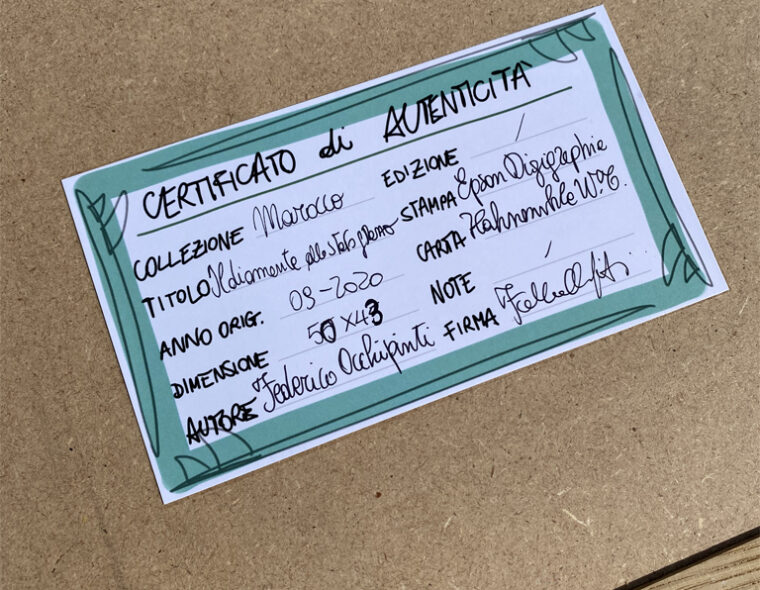 CERTIFICATO di AUTENTICITÀ
COLLEZIONE Marocco
TITOLO Il diamante allo stato
ANNO ORIG. 09-2020
DIMENSIONE 50x43
AUTORE Federico Occhipinti
EDIZIONE /
STAMPA Epson Digigraphie
CARTA Hahnemühle
NOTE /
FIRMA